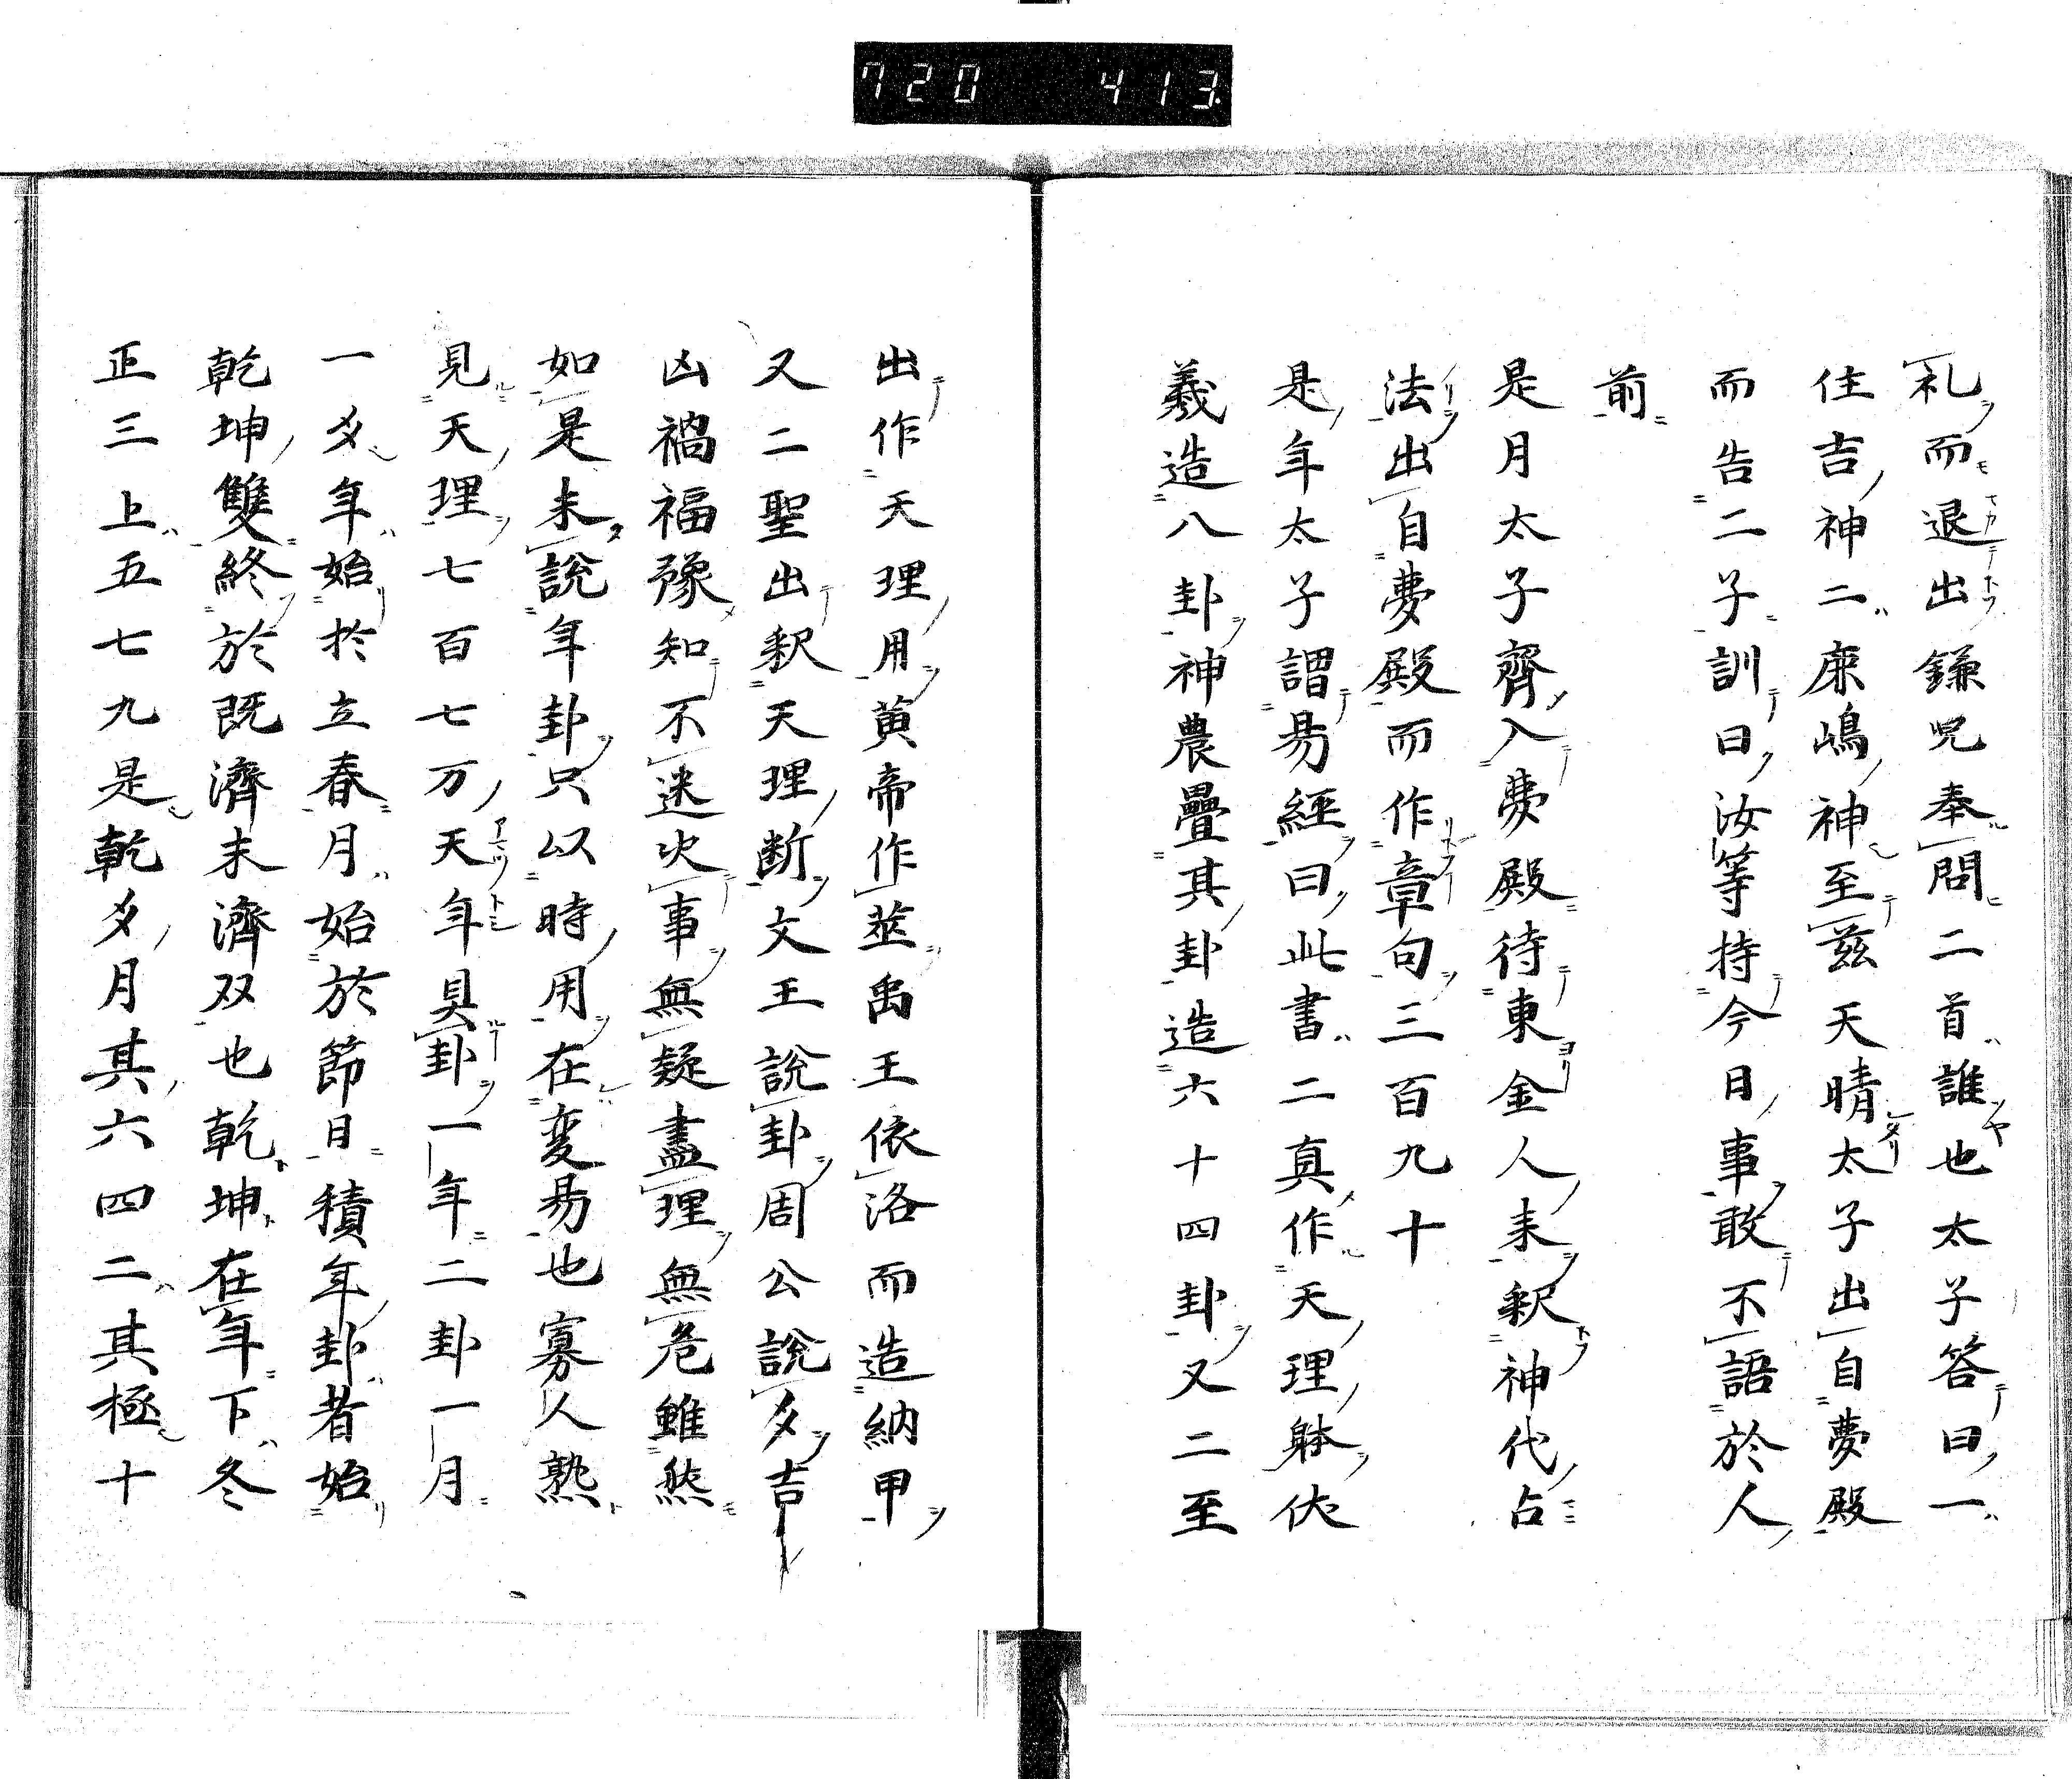 720 413.
礼而退出鎌児奉問二首誰也太子答曰一
住吉神二鹿嶋神至茲天晴太子出自夢殿
而告二子訓曰汝等持今日事敢不語於人
前
是月太子齊入夢殿待東金人来釈神代占
法出自夢殿而作章句三百九十
是年太子謂易経曰此書二真作天理躰伏
羲造八卦神農疊其卦造六十四卦又二至
出作天理用黄帝作莁禹王依洛而造納甲
又二聖出釈天理断文王說卦周公說爻吉
凶禍福豫知不迷火事無疑盡理無危雖然
如是未說年卦只以時用在変易也寡人熟
見天理七百七万天年具卦一年二卦一月
一爻年始於立春月始於節日積年卦者始
乾坤雙終於既濟未濟双也乾坤在年下冬
正三上五七九是乾爻月其六四二其極十